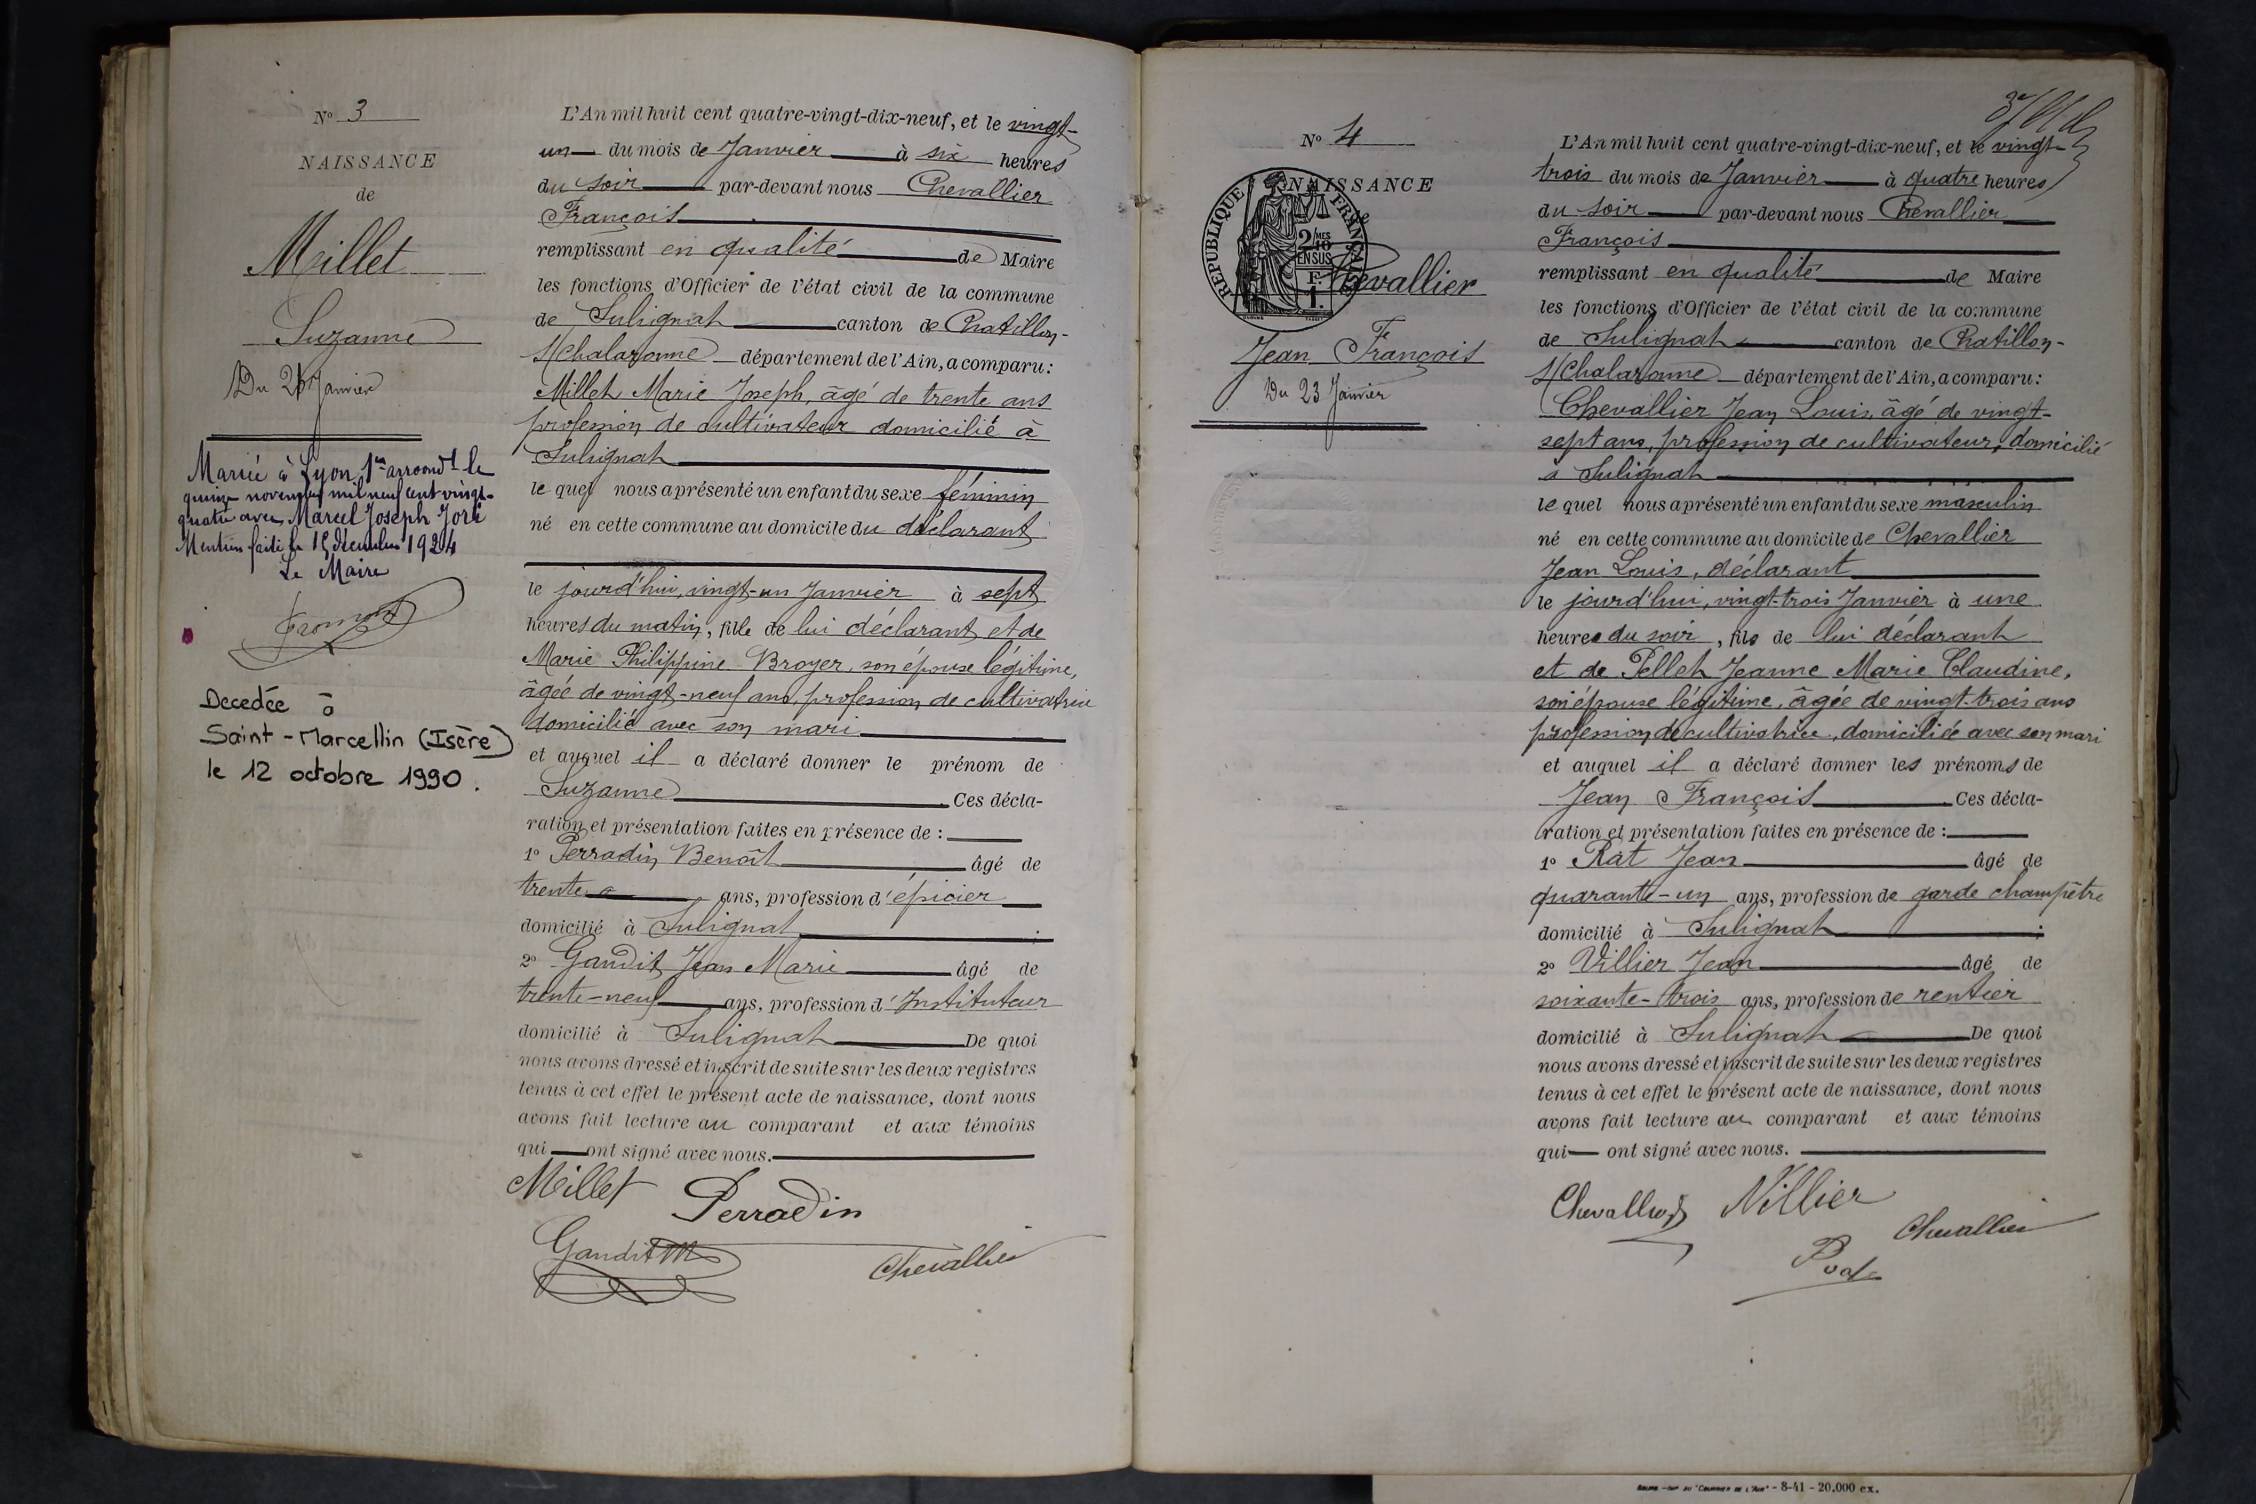 No 3
NAISSANCE
de
Millet
Suzanne
Du 21 Janvier
Mariée à Lyon 1er arrondt le
quinze novembre mil neuf cent vingt-
quatre avec Marcel Joseph
Mention faite le 15 décembre 1924
Le Maire
Decedée à
Saint-Marcellin (Isère)
le 12 octobre 1990.
L'An mil huit cent quatre-vingt-dix-neuf, et le vingt-
un du mois de Janvier à six heures
du soir par-devant nous Chevallier
François
remplissant en qualité de Maire
les fonctions d'Officier de l'état civil de la commune
de Sulignat canton de Chatillon-
s/Chalaronne département de l'Ain, a comparu:
Millet Marie Joseph, âgé de trente ans
profession de cultivateur domicilié à
Sulignat
le quel nous a présenté un enfant du sexe féminin
né en cette commune au domicile du déclarant
le jourd'hui, vingt-un Janvier à sept
heures du matin, fille de lui déclarant et de
Marie Philippine Broyer, son épouse légitime,
âgée de vingt-neuf ans, profession de cultivatrice
domicilié avec son mari
et auquel il a déclaré donner le prénom de
Suzanne Ces décla-
ration et présentation faites en présence de :
1o Perradin Benoît âgé de
trente ans, profession d'épicier
domicilié à Sulignat
2o Gandit Jean Marie âgé de
trente-neuf ans, profession d'Instituteur
domicilié à Sulignat De quoi
nous avons dressé et inscrit de suite sur les deux registres
tenus à cet effet le présent acte de naissance, dont nous
avons fait lecture au comparant et aux témoins
qui ont signé avec nous.
Millet Perradin
Gandit M Chevallier
No 4
NAISSANCE
REPUBLIQUE FRANÇAISE
2/10 MES
EN SUS
F.
1.
Chevallier
Jean François
Du 23 Janvier
L'An mil huit cent quatre-vingt-dix-neuf, et le vingt-
trois du mois de Janvier à quatre heures
du soir par-devant nous Chevallier
François
remplissant en qualité de Maire
les fonctions d'Officier de l'état civil de la commune
de Sulignat canton de Chatillon-
s/Chalaronne département de l'Ain, a comparu:
Chevallier Jean Louis, âgé de vingt-
sept ans, profession de cultivateur, domicilié
à Sulignat
le quel nous a présenté un enfant du sexe masculin
né en cette commune au domicile de Chevallier
Jean Louis, déclarant
le jourd'hui, vingt-trois Janvier à une
heure du soir, fils de lui déclarant
et de Pellet Jeanne Marie Claudine,
son épouse légitime, âgée de vingt-trois ans
profession de cultivatrice, domiciliée avec son mari
et auquel il a déclaré donner les prénoms de
Jean François Ces décla-
ration et présentation faites en présence de :
1o Rat Jean âgé de
quarante-un ans, profession de garde champêtre
domicilié à Sulignat ;
2o Villier Jean âgé de
soixante-trois ans, profession de rentier
domicilié à Sulignat De quoi
nous avons dressé et inscrit de suite sur les deux registres
tenus à cet effet le présent acte de naissance, dont nous
avons fait lecture au comparant et aux témoins
qui ont signé avec nous.
Chevallier Villier
Chevallier
8-41 - 20.000 ex.